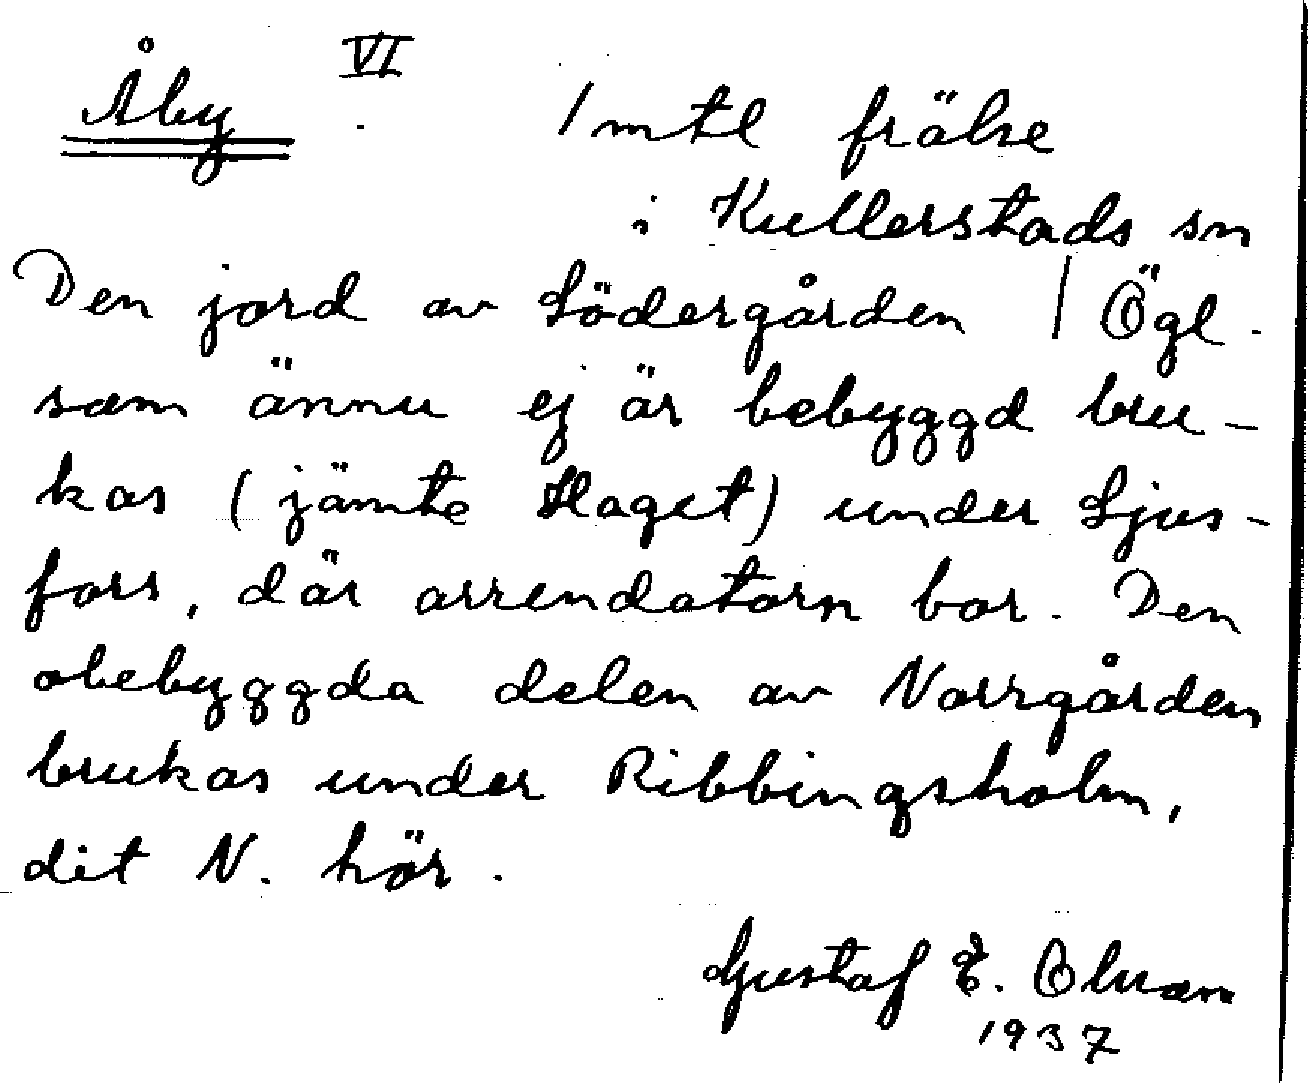 Åby VI 1 mtl frälse
i Kullerstads sn
Den jord av Södergården | Ögl.
som ännu ej är bebyggd bru-
kas (jämte Haget) under Ljus-
fors, där arrendatorn bor. Den
obebyggda delen av Norrgården
brukas under Ribbingsholm,
dit N. hör.
Gustaf E. Olsson
1937